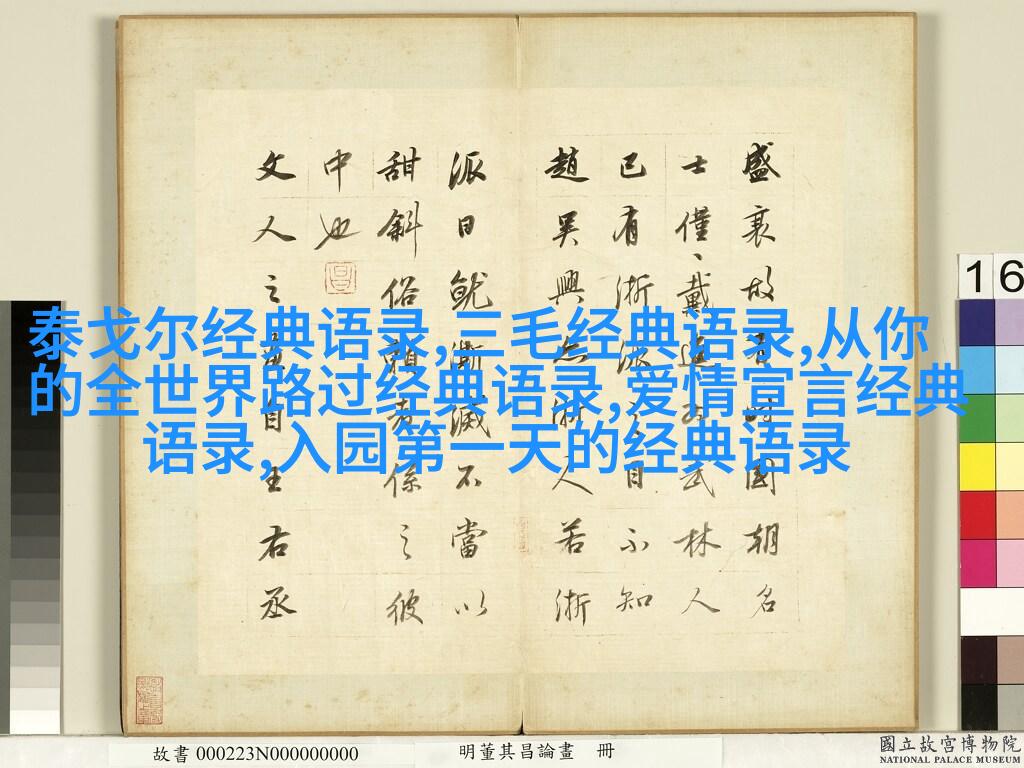 盛衰故有時國朝名
士僅、戴進為武林人
已有浙派之目不知
趙吳興亦浙人若浙
派日就澌滅不當以
甜斜俗賴者係之彼
中也
文人之畫自王右丞
泰戈尔经典语录,三毛经典语录,从你
的全世界路过经典语录,爱情宣言经典
语录,入园第一天的经典语录
16
故書 000223N000000000
明董其昌論畫 冊
國立故宮博物院
NATIONAL PALACE MUSEUM